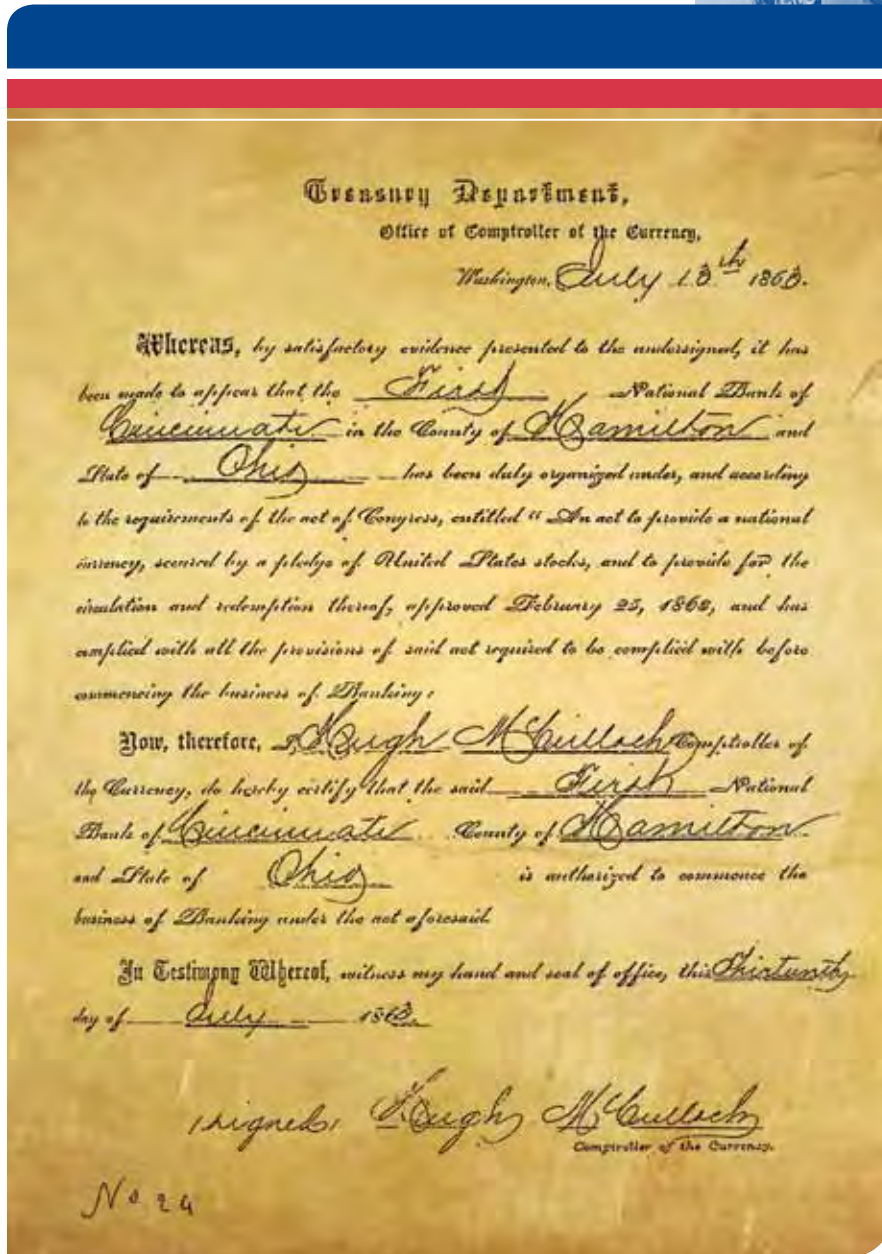 Treasury Department,
Office of Comptroller of the Currency,
Washington, July 13th 1863.
Whereas, by satisfactory evidence presented to the undersigned, it has
been made to appear that the First National Bank of
Cincinnati in the County of Hamilton and
State of Ohio has been duly organized under, and according
to the requirements of the act of Congress, entitled "An act to provide a national
currency, secured by a pledge of United States stocks, and to provide for the
circulation and redemption thereof, approved February 25, 1863, and has
complied with all the provisions of said act required to be complied with before
commencing the business of Banking:
Now, therefore, I Hugh McCulloch Comptroller of
the Currency, do hereby certify that the said First National
Bank of Cincinnati County of Hamilton
and State of Ohio is authorized to commence the
business of Banking under the act aforesaid
In Testimony Whereof, witness my hand and seal of office, this Thirteenth
day of July 1863.
signed, Hugh McCulloch
Comptroller of the Currency.
No 24